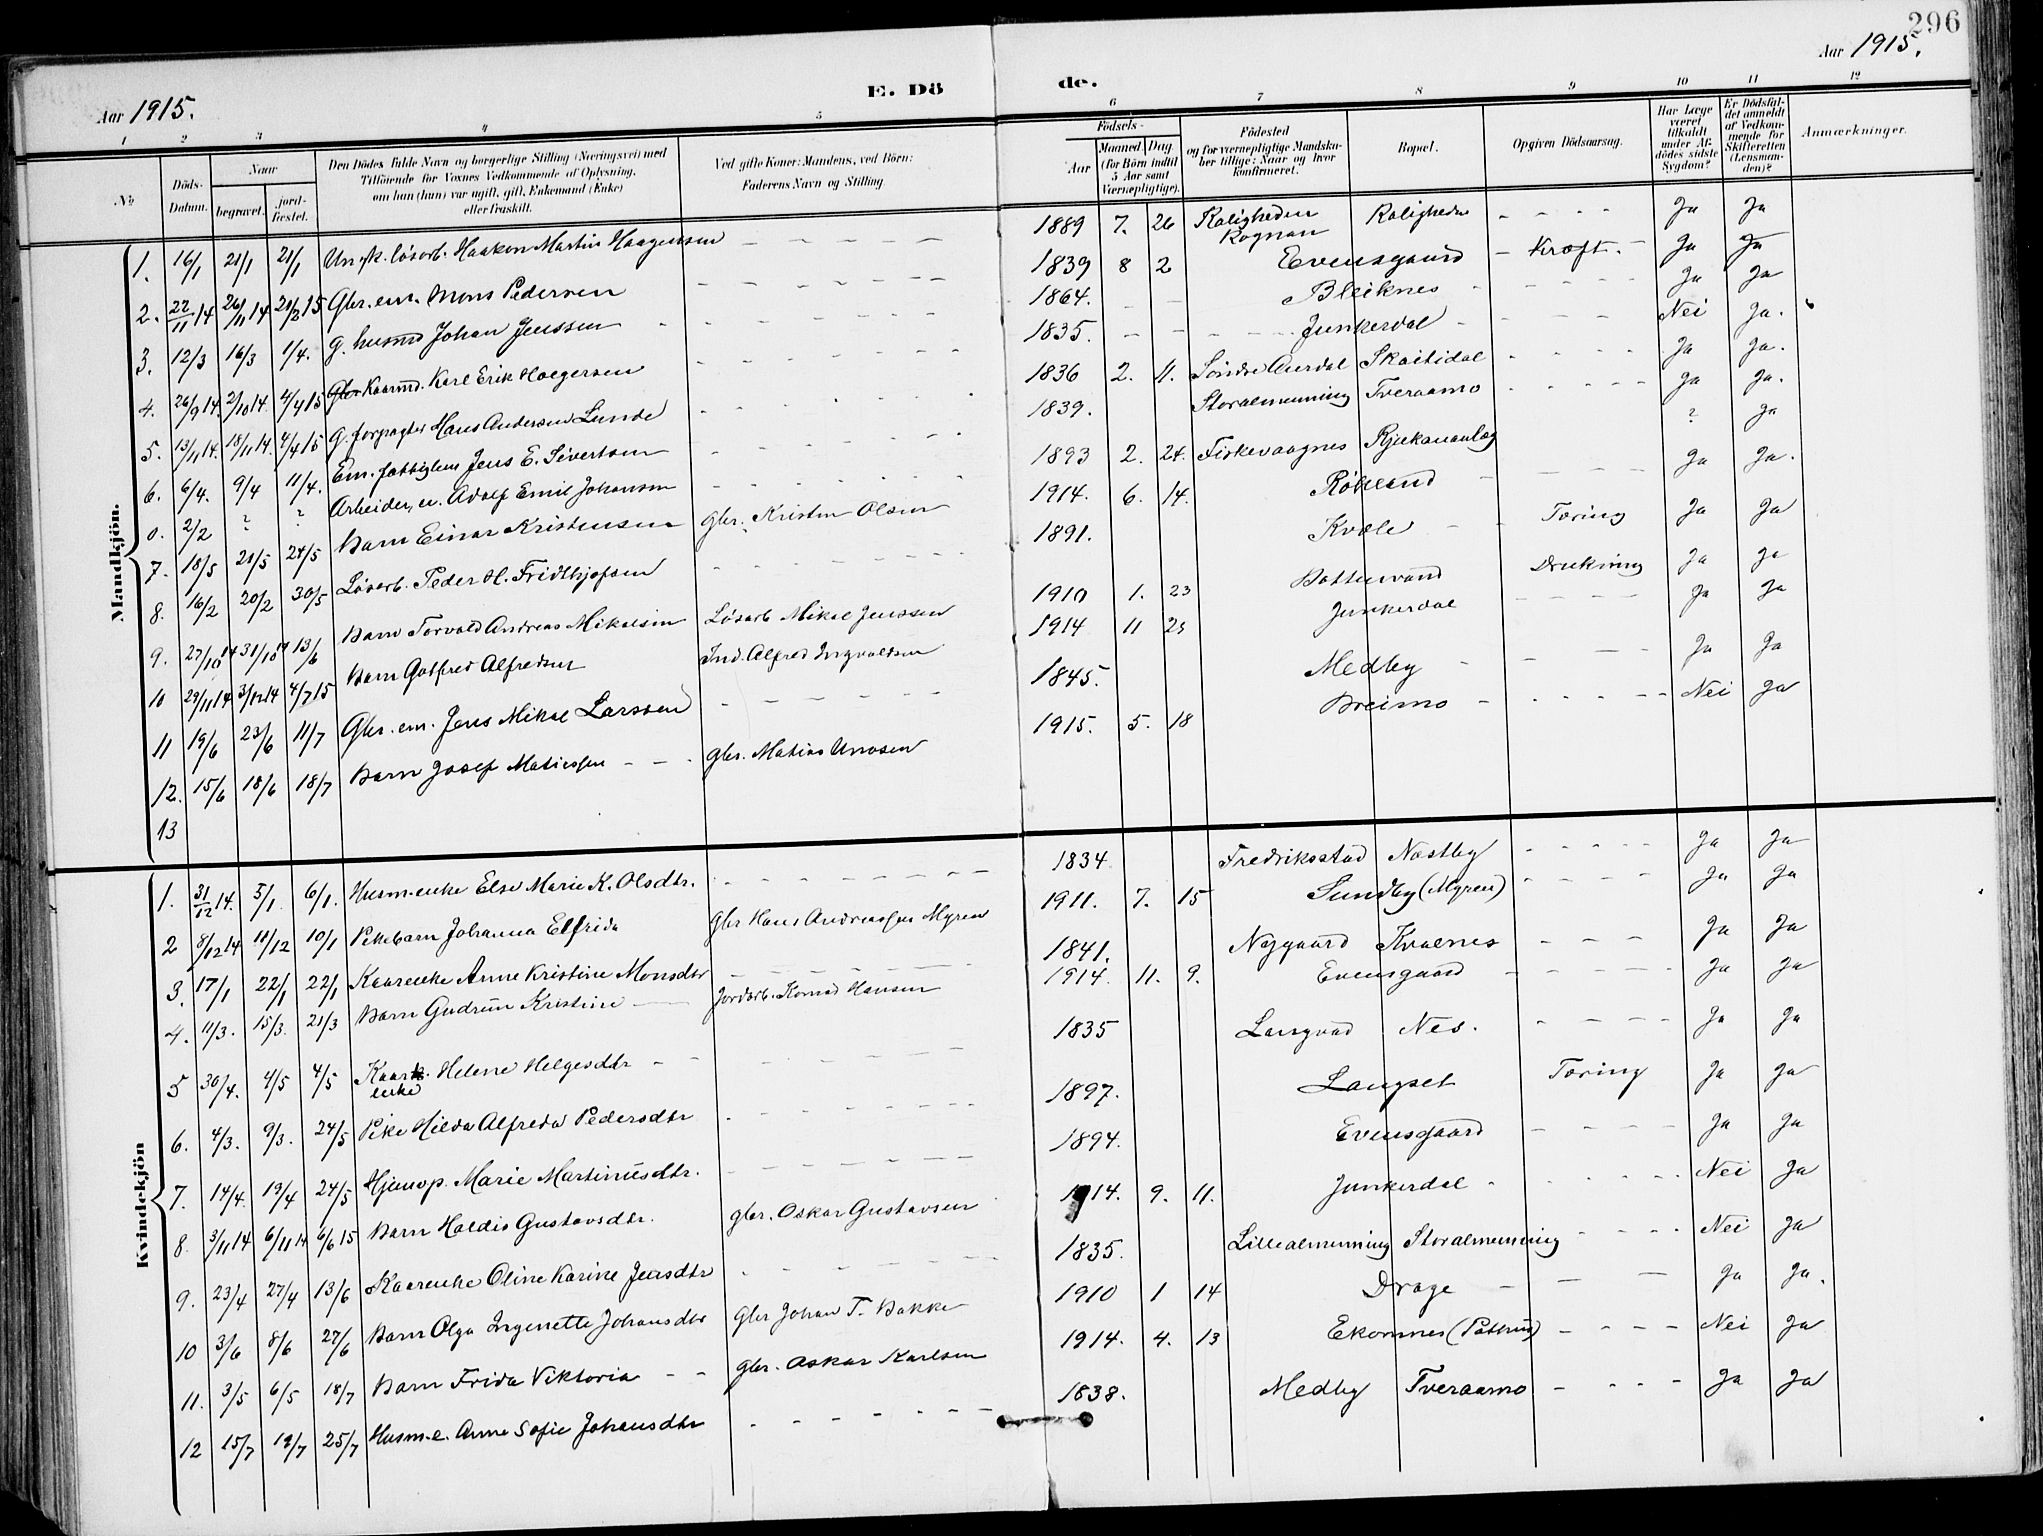 296
Aar 1915.
E. Dö de.
Aar 1915.
1 2 3 4 5 6 7 8 9 10 11 12
No
Döds-Datum.
Naar
begravet.
jord-fæstet.
Den Dödes fulde Navn og borgerlige Stilling (Næringsvei) med
Tilföiende for Voxnes Vedkommende af Oplysning,
om han (hun) var ugift, gift, Enkemand (Enke)
eller fraskilt.
Ved gifte Koner: Mandens, ved Börn:
Faderens Navn og Stilling
Födsels-
Aar
Maaned. Dag.
(for Börn indtil
5 Aar samt
Værnepligtige).
Födested
og for værnepligtige Mandska-
ber tillige: Naar og hvor
konfirmeret.
Bopæl.
Opgiven Dödsaarsag.
Har Læge
været
tilkaldt
under Af-
dödes sidste
Sygdom?
Er Dödsfal-
det anmeldt
af Vedkom-
mende for
Skifteretten
(Lensman-
den)?
Anmærkninger.
Mandkjön.
1. 16/1 21/1 21/1 Ungk. løsarb. Haakon Martin Haagensen 1889 7. 26 Roligheden Rognan Roligheden Ja Ja
2. 22/11 14 26/11 14 21/2 15 Gbr. em. Mons Pedersen 1839 8 2 Evensgaard Kræft. Ja Ja
3. 12/3 16/3 1/4. G. husmd Johan Jenssen 1864. Bleiknes Ja Ja
4. 26/9 14. 2/10 14. 4/4 15 Kaarmd. Karl Erik Holgersen 1835. Junkerdal Nei Ja.
5. 13/11 14. 18/11 14. 4/4 15 G. forpagter Hans Andersen Lunde 1836 2. 11. Søndre Aurdal Skaitidal Ja Ja.
6. 6/4. 9/4 11/4. Em. fattiglem Jens E. Sivertsen 1839. Storalmenning Tveraamo Ja Ja.
0. 2/2 ? ? Arbeider, u. Adolf Emil Johansen 1893 2. 24. Fiskevaagnes Rjukananlæg ? Ja
7. 18/5 21/5 24/5 Barn Einar Kristensen Gbr. Kristen Olsen 1914. 6. 14. Røkland Ja Ja.
8. 16/2 20/2 30/5 Løsarb. Peder H. Fridthjofsen 1891. Kvæle Tæring Ja Ja
9. 27/10 14 31/10 14 13/6 Barn Torvald Andreas Mikalsen Løsarb Mikal Jenssen 1910 1. 23 Bottenvand Drukning Ja Ja
10 29/11 14 3/12 14 4/7 15 Barn Gotfred Alfredsen Ind. Alfred Ingvaldsen 1914 11 25 Junkerdal Ja Ja
11 19/6 23/6 11/7 Gbr. em. Jens Mikal Larssen 1845. Medby Ja Ja
12. 15/6 18/6 18/7 Barn Josef Matiessen Gbr. Matias Unosen 1915. 5. 18 Breimo Nei Ja
13
Kvindekjön
1. 31/12 14. 5/1 6/1. Husm.enke Else Marie K. Olsdtr. 1834 Fredriksstad Næstby Ja Ja
2 8/12 14 11/12 10/1 Pikebarn Johanna Elfrida Gbr Hans Andreassen Myren 1911. 7. 15 Sundby (Myren) Ja Ja
3. 17/1 22/1 22/1 Kaarenke Anne Kristine Monsdtr 1841. Nygaard Kvænes Ja Ja
4. 11/3. 15/3. 21/3 Barn Gudrun Kristine Jordarb. Konrad Hansen 1914. 11. 9. Evensgaard Ja Ja
5 30/4. 4/5 4/5 Kaark. enke Helene Helgesdtr 1835 Langvad Nes. Ja Ja
6. 4/3. 9/3. 24/5 Pike Hilda Alfreda Pedersdtr 1897. Langset Tæring Ja Ja
7. 14/4. 19/4 24/5 Hjemop. Marie Martinusdtr. 1894. Evensgaard Ja Ja
8. 3/11 14 6/11 14 6/6 15 Barn Haldis Gustavsdtr. Gbr. Oskar Gustavsen 1914. 9. 11. Junkerdal Nei Ja
9. 23/4 27/4 13/6 Kaarenke Oline Karine Jensdtr 1835. Lillealmenning Storalmenning Nei Ja
10 3/6 8/6 27/6 Barn Olga Ingenette Johansdtr Gbr Johan T. Bakke 1910 1 14 Drage Ja Ja.
11. 3/5 6/5 18/7 Barn Frida Viktoria Gbr. Oskar Karlsen 1914. 4. 13 Ekornnes Nei Ja
12 15/7 19/7 25/7 Husm.e. Anne Sofie Johansdtr 1838. Medby Tveraamo Ja Ja